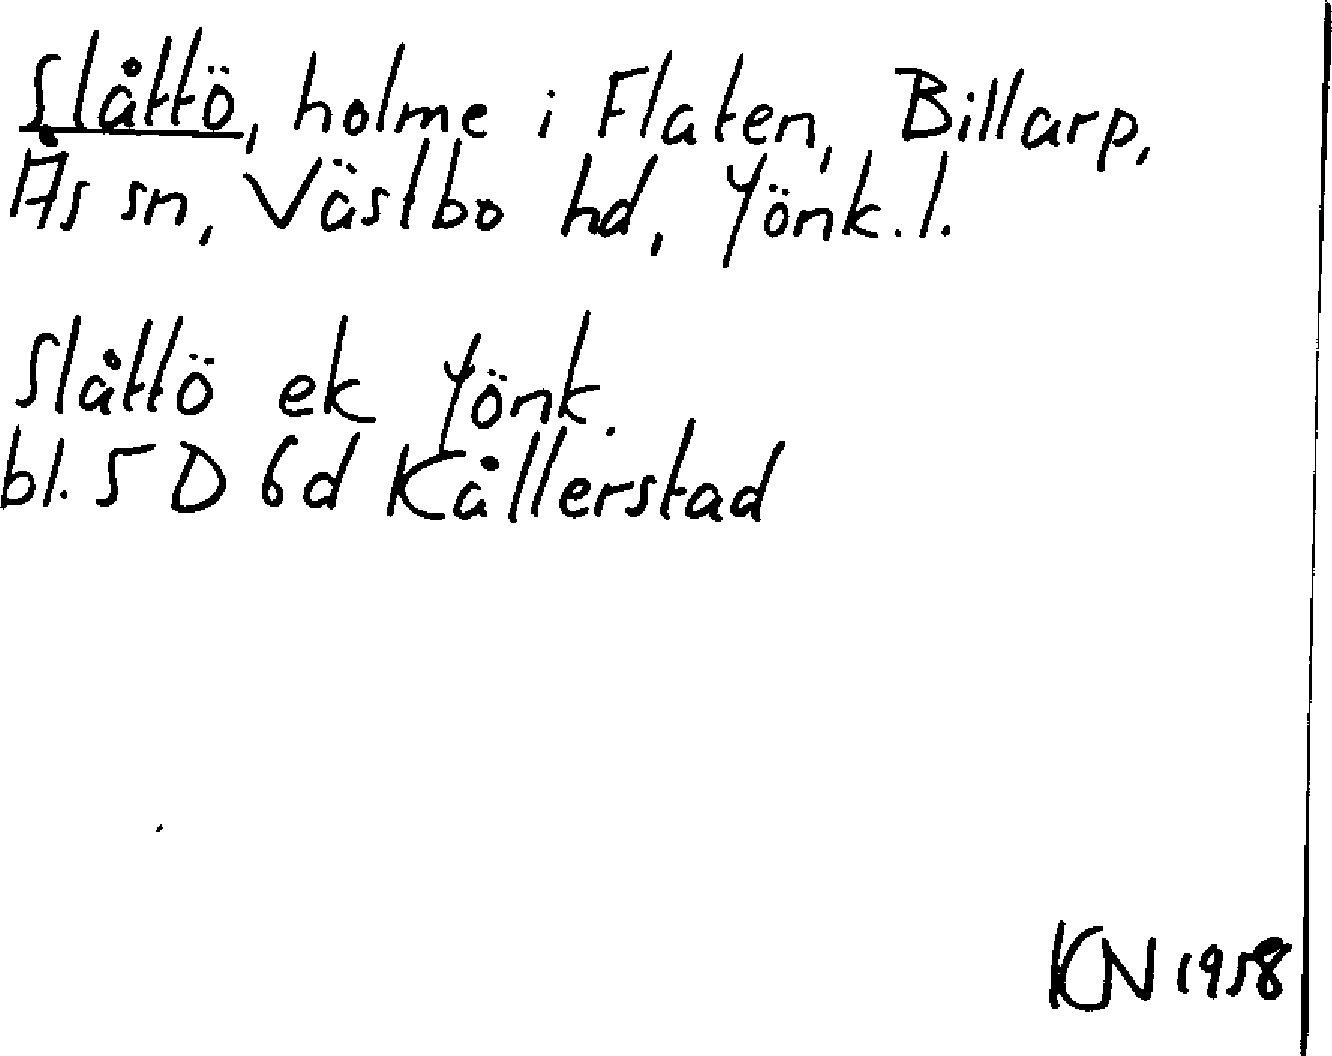 Slåttö, holme i Flaten, Billarp,
Ås sn, Västbo hd, Jönk. l.
Slåttö ek Jönk.
bl. 5 D 6d Kållerstad
KN 1958